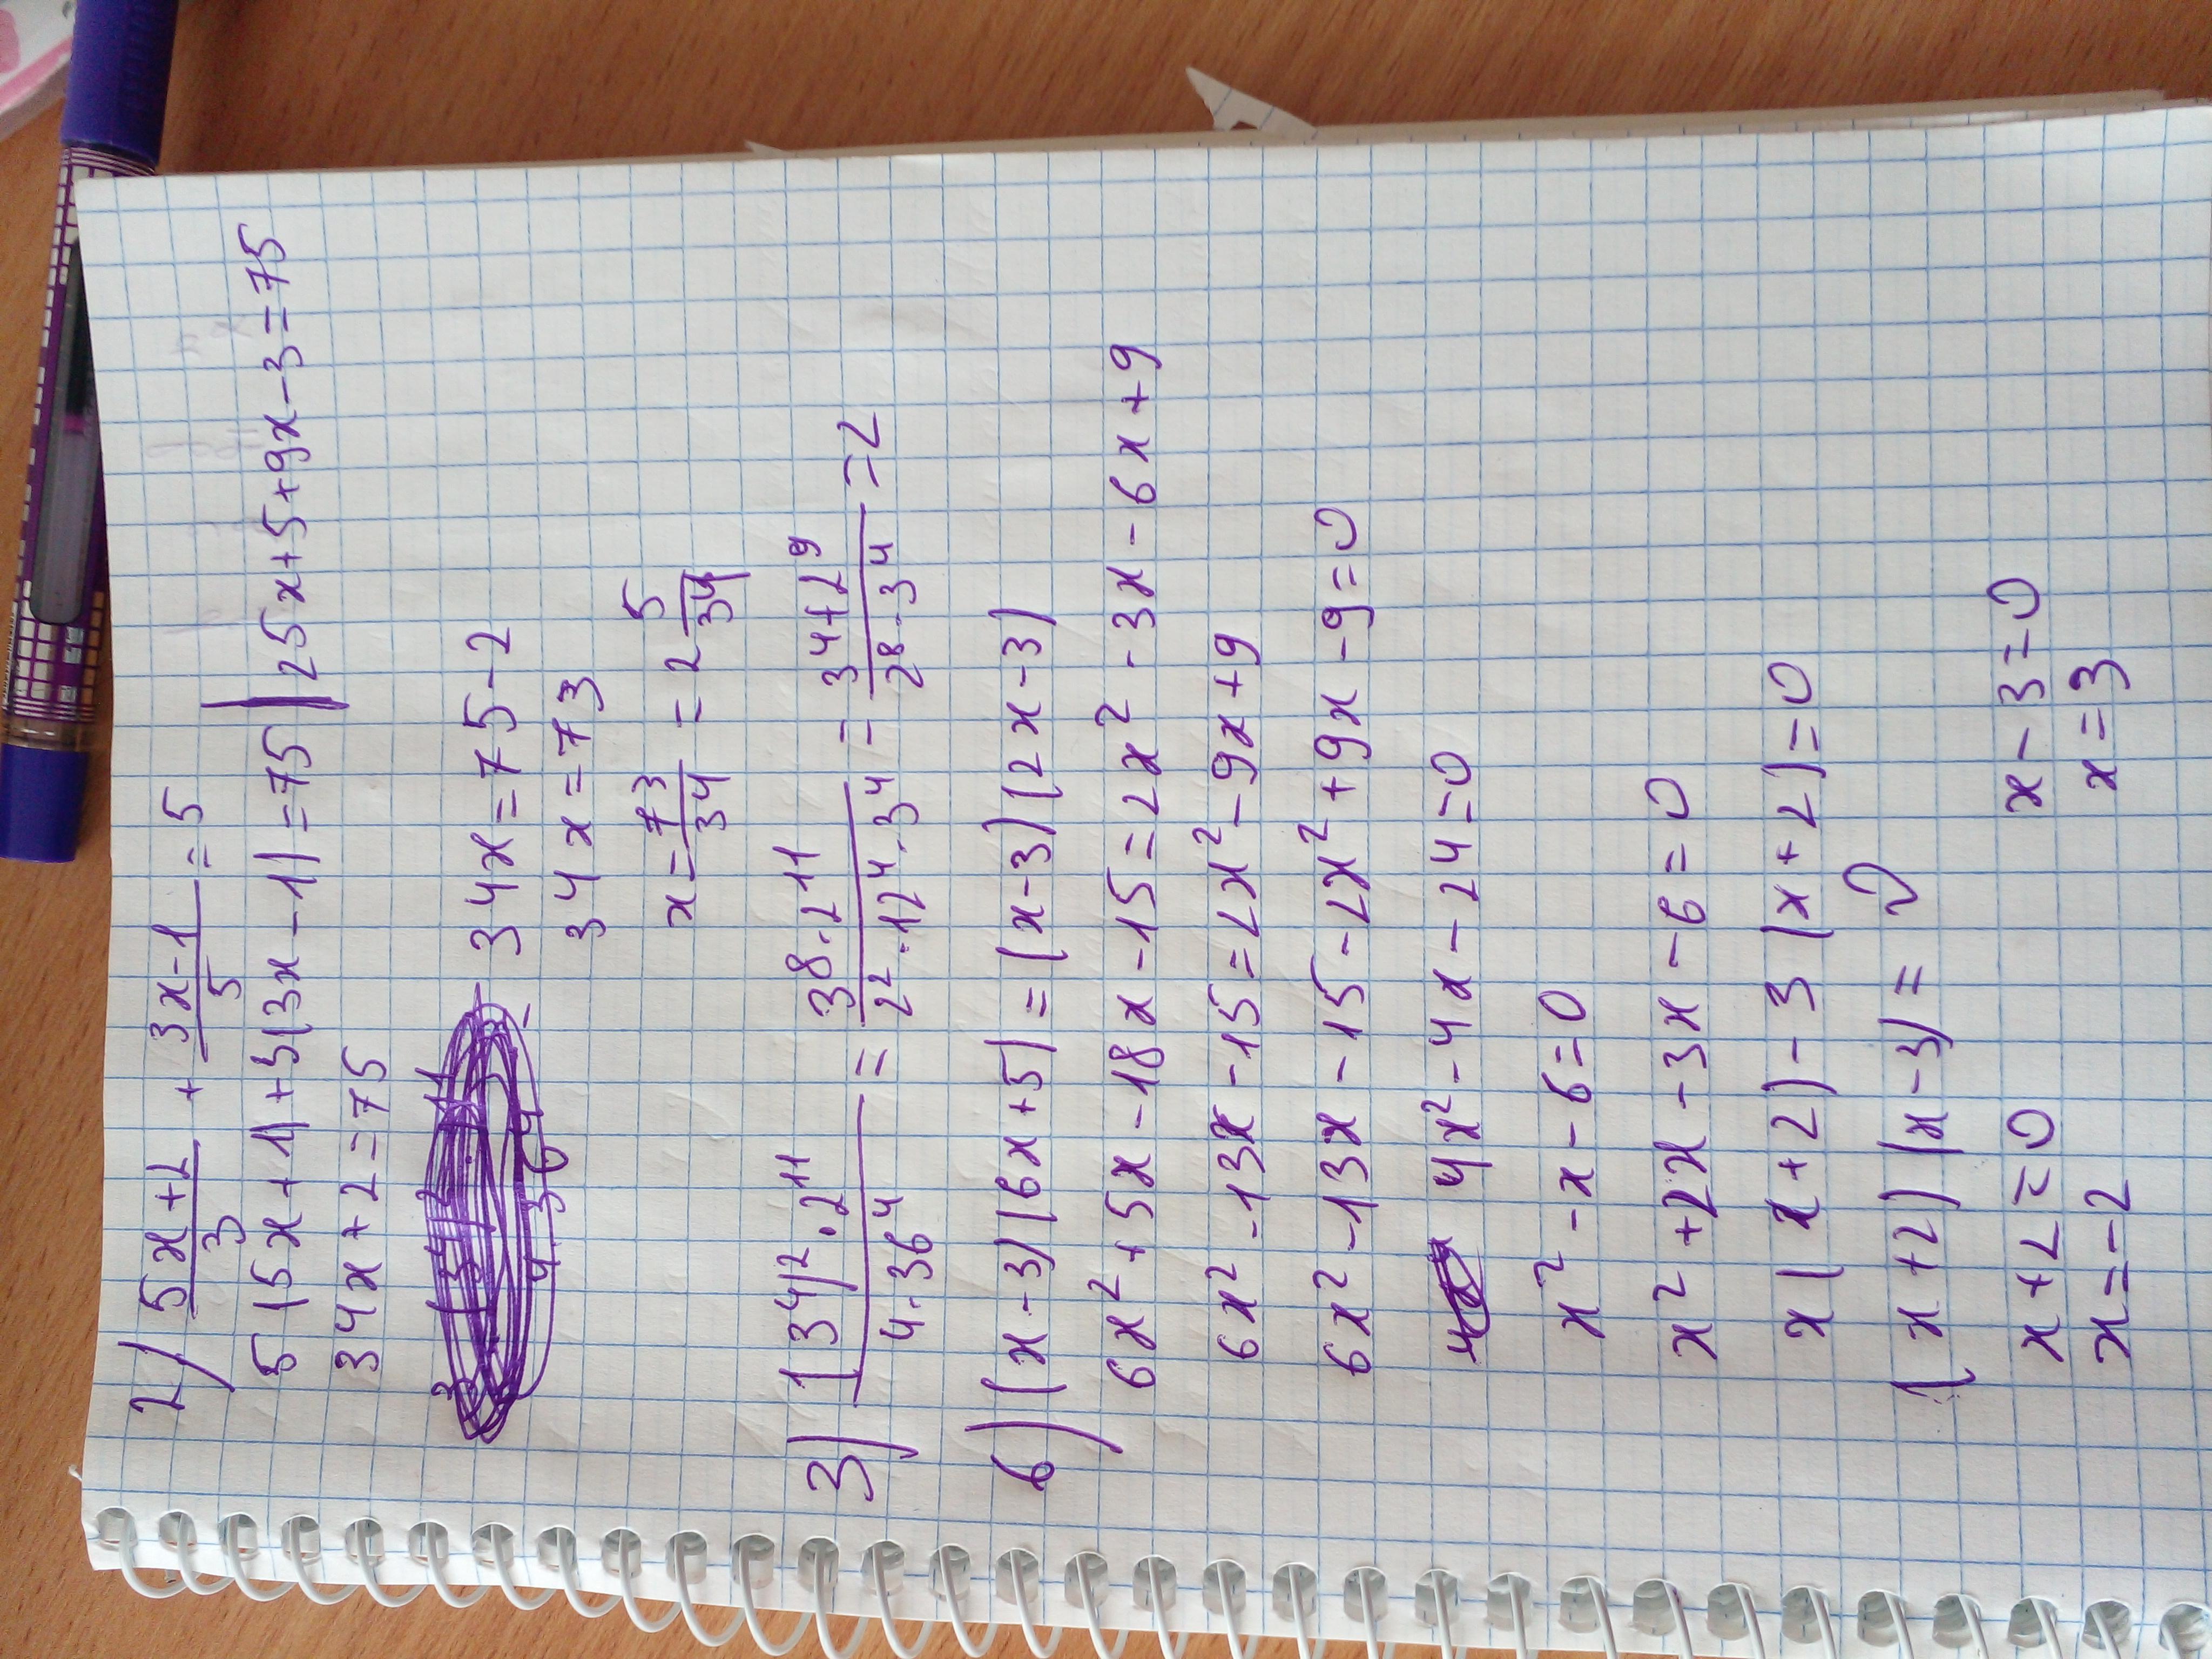 2) (5x+2)/3 + (3x-1)/5 = 5
5(5x+1)+3(3x-1)=75 | 25x+5+9x-3=75
34x+2=75
34x=75-2
34x=73
x=73/34=2 5/34
3) ((3⁴)²·2¹¹)/(4·36⁴) = (3⁸·2¹¹)/(2²·12⁴·3⁴) = (3⁴+2⁹)/(2⁸·3⁴) = 2
6) (x-3)(6x+5)=(x-3)(2x-3)
6x²+5x-18x-15=2x²-3x-6x+9
6x²-13x-15=2x²-9x+9
6x²-13x-15-2x²+9x-9=0
4x²-4x-24=0
x²-x-6=0
x²+2x-3x-6=0
x(x+2)-3(x+2)=0
(x+2)(x-3)=0
x+2=0 x-3=0
x=-2 x=3